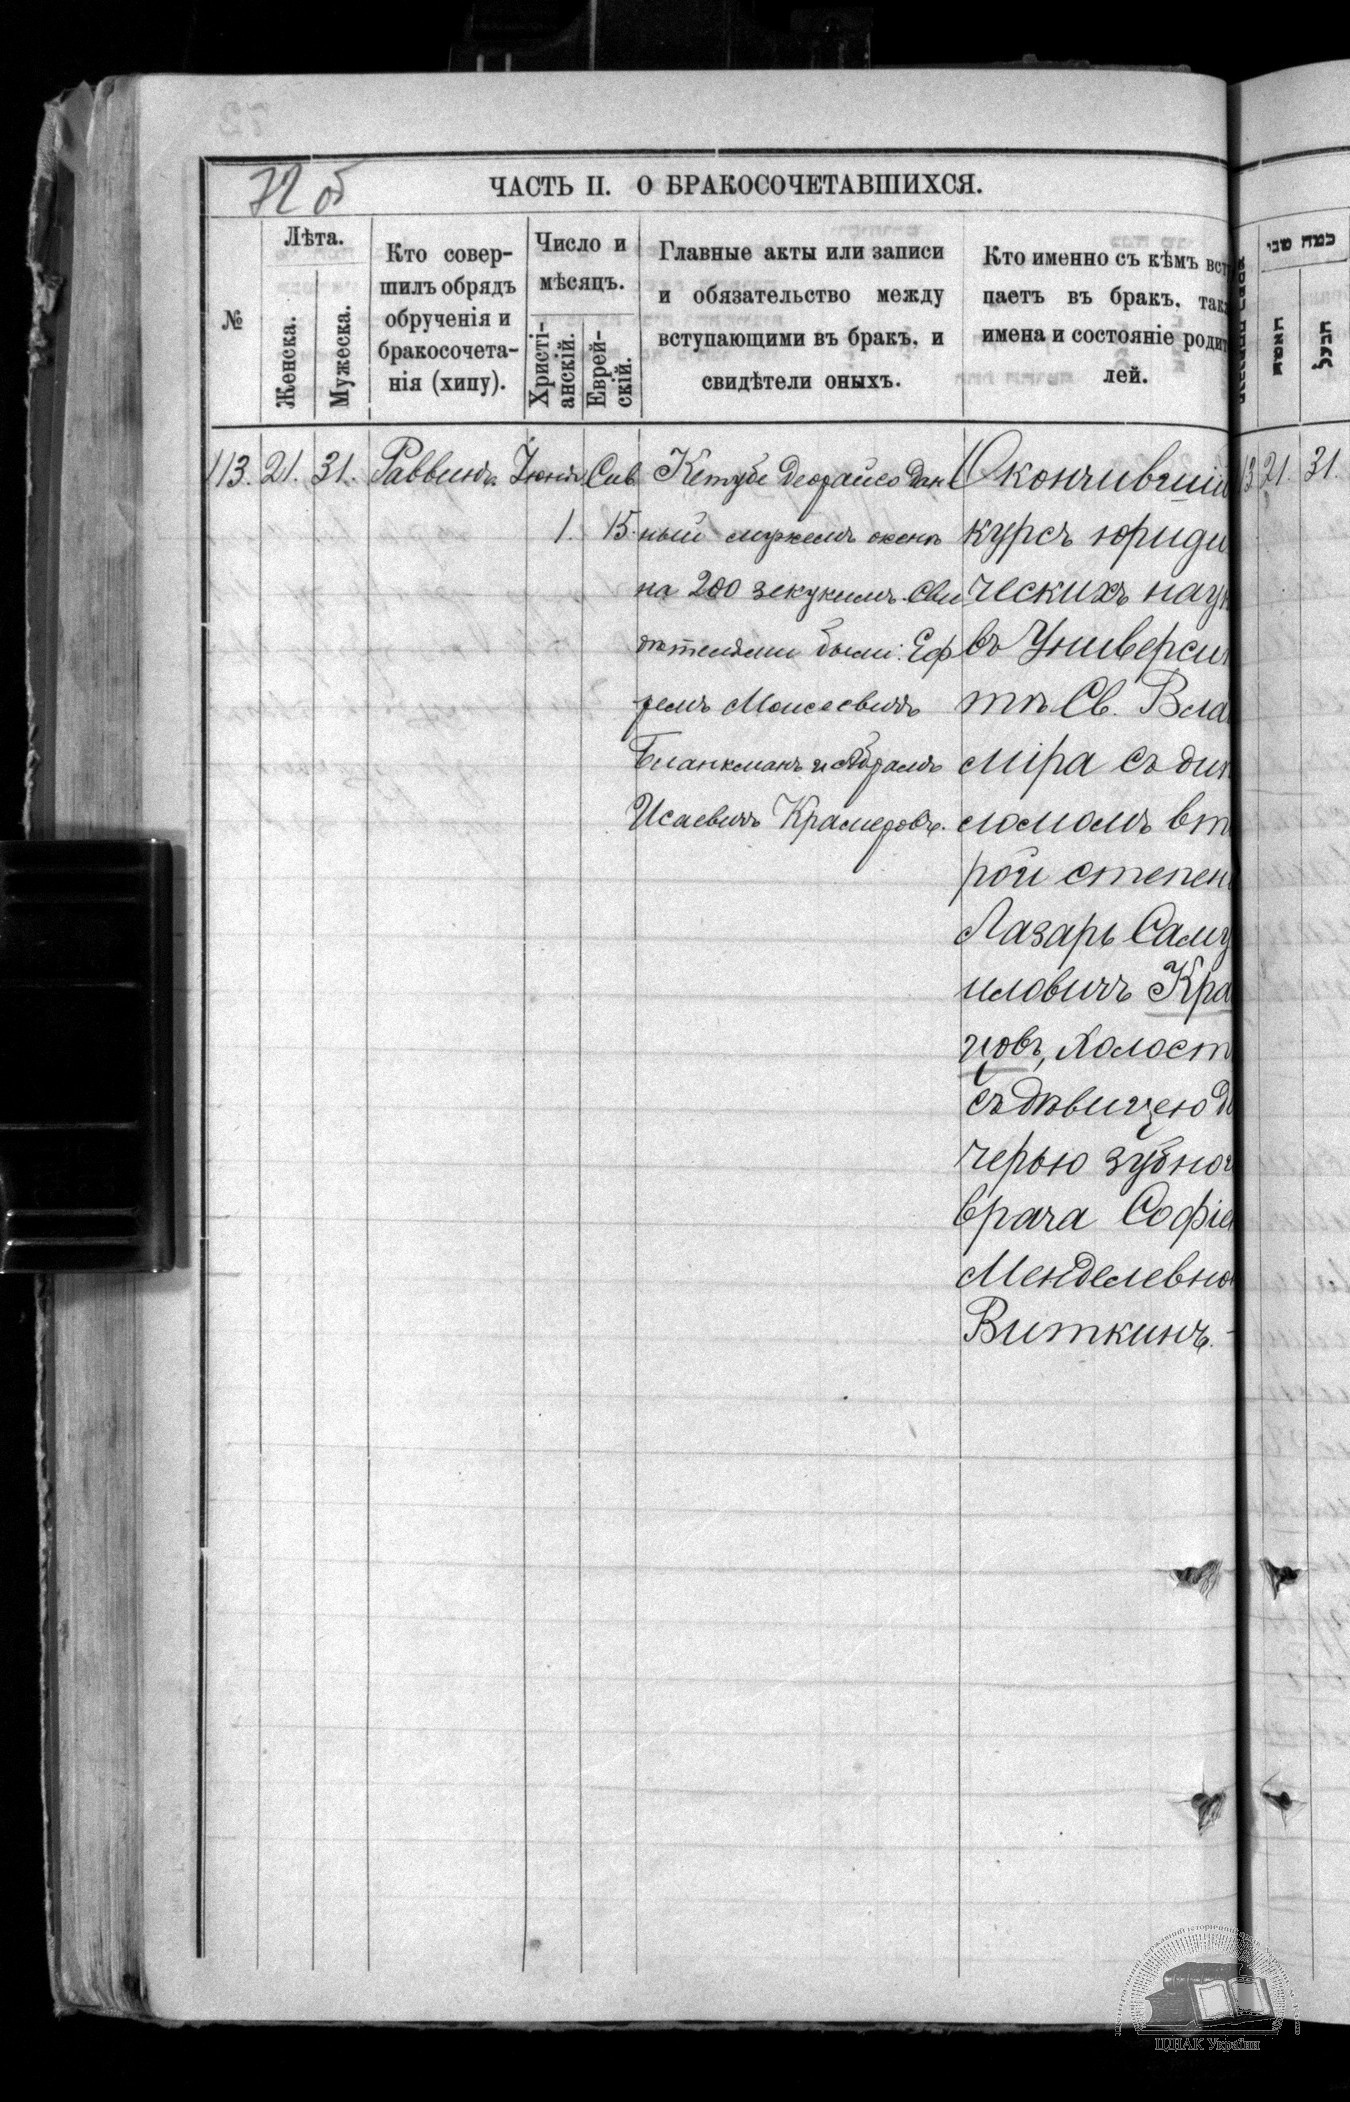 72 об
ЧАСТЬ II. О БРАКОСОЧЕТАВШИХСЯ.
№
Лѣта.
Женска.
Мужеска.
Кто совер-
шилъ обрядъ
обрученія и
бракосочета-
нія (хипу).
Число и
мѣсяцъ.
Христі-
анскій.
Еврей-
скій.
Главные акты или записи
и обязательство между
вступающими въ бракъ, и
свидѣтели оныхъ.
Кто именно съ кѣмъ вст
паетъ въ бракъ, так
имена и состояніе родит
лей.
כמה שני
האשה
הבעל
113. 21. 31. Раввинъ. Іюня
1.
Сив
15.
Кетубе деорайсо дан
ный мужемъ женѣ
на 200 зекукимъ. Сви
дѣтелями были: Еф
ремъ Моисеевичъ
Бланкманъ и Абрамъ
Исаевичъ Крамеровъ.
Окончившій
курсъ юриди
ческихъ наук
въ Университ
тѣ Св. Влад
міра съ дип
ломомъ вт
рой степени
Лазарь Саму
иловичъ Кра
цовъ, холост
съ дѣвицею до
черью зубног
врача Софіе
Менделевно
Виткинъ. -
13 21. 31.
ЦДІАК України